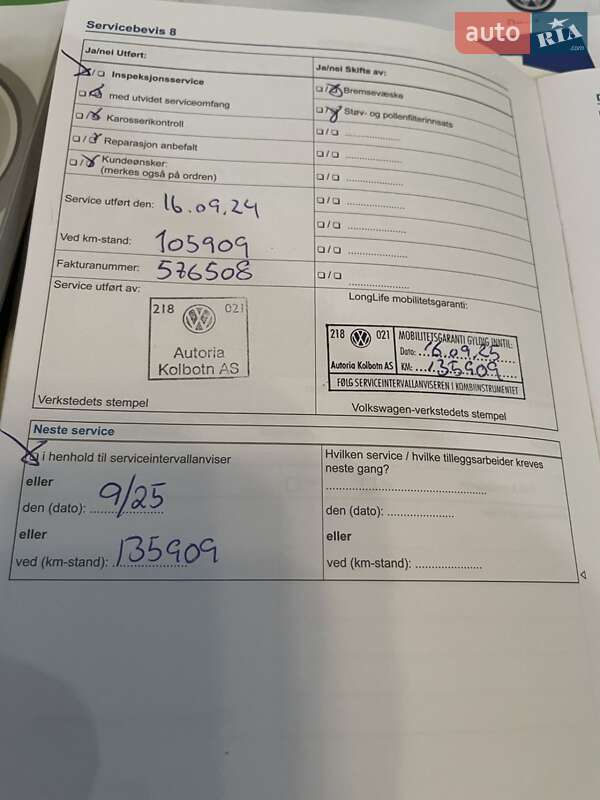 Servicebevis 8
auto RIA.com
Ja/nei Utført:
Ja/nei Skifts av:
Inspeksjonsservice
Bremsevæske
med utvidet serviceomfang
Støv- og pollenfilterinnsats
Karosserikontroll
Reparasjon anbefalt
Kundeønsker:
(merkes også på ordren)
Service utført den: 16.09.24
Ved km-stand: 105909
Fakturanummer: 576508
Service utført av:
LongLife mobilitetsgaranti:
218 021
Autoria
Kolbotn AS
218 021
Autoria Kolbotn AS
MOBILITETSGARANTI GYLDIG INNTIL:
Dato: 16.09.25
KM: 135909
FØLG SERVICEINTERVALLANVISEREN I KOMBIINSTRUMENTET
Verkstedets stempel
Volkswagen-verkstedets stempel
Neste service
i henhold til serviceintervallanviser
eller
den (dato): 9/25
eller
ved (km-stand): 135909
Hvilken service / hvilke tilleggsarbeider kreves
neste gang?
den (dato):
eller
ved (km-stand):